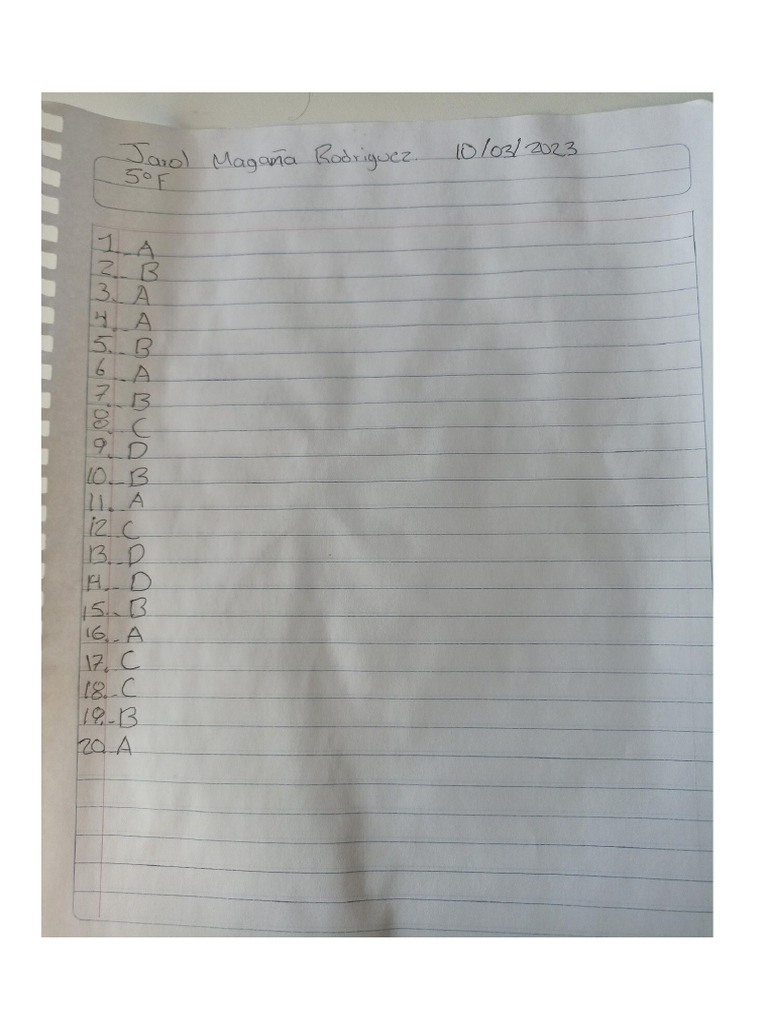 Jarol Magaña Rodriguez. 10/03/2023
5°F
1._ A
2._ B
3._ A
4._ A
5._ B
6_ A
7._ B
8._ C
9._ D
10._ B
11._ A
12 C
13._ D
14._ D
15._ B
16._ A
17._ C
18._ C
19.- B
20 A